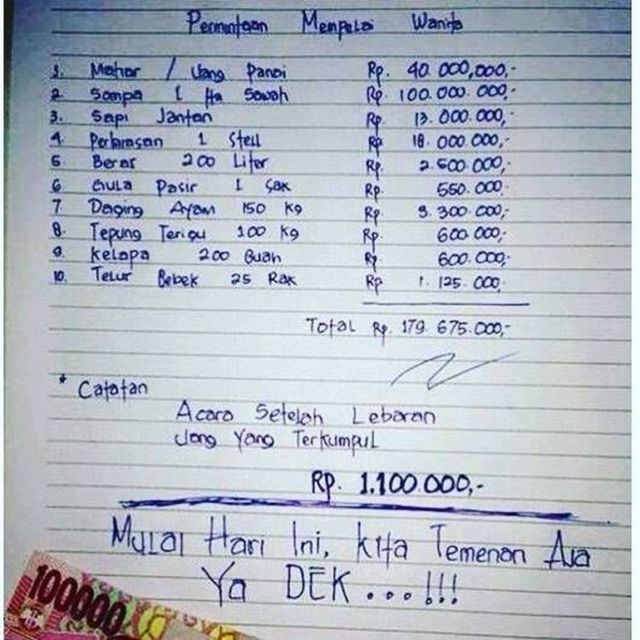 Permintaan Mempelai Wanita
1. Mahar / Uang Panai Rp. 40.000,000,-
2. Sompa 1 Ha Sawah Rp. 100.000.000,-
3. Sapi Jantan Rp 13.000.000,-
4. Perhiasan 1 Stell Rp 18.000.000,-
5 Beras 200 Liter Rp. 2.500.000,-
6 Gula Pasir 1 Sak Rp 550.000.-
7. Daging Ayam 150 Kg Rp 3.300.000,-
8. Tepung Terigu 100 Kg Rp 600.000,-
9. Kelapa 200 Buah Rp 600.000,-
10. Telur Bebek 25 Rak Rp 1.125.000,-
Total Rp. 179.675.000,-
* Catatan
Acara Setelah Lebaran
Uang Yang Terkumpul
Rp. 1.100.000,-
Mulai Hari Ini, Kita Temenan Aja
Ya DEK...!!!
100000